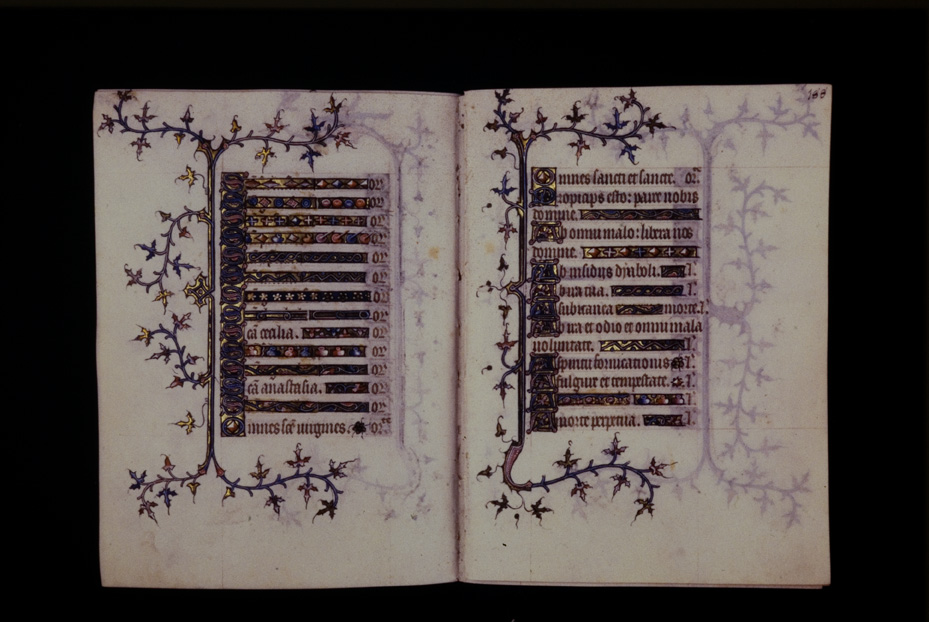 or
or
or
or
or
or
or
or
cā cecilia. or
or
or
cā anastasia. or
or
Omnes sc̄e uirgines. or
188
Omnes sancti et sancte. or
Propicius esto: parce nobis
domine.
Ab omni malo: libera nos
domine.
Ab insidijs dyaboli. l.
A l.
A subitanea morte. l.
A ira et odio et omni mala
uoluntate. l.
A spiritu fornicationis l.
A fulgure et tempestate. l.
A l.
A morte perpetua. l.